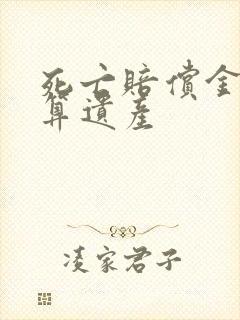 死亡賠償金
算遺產
凌家君子